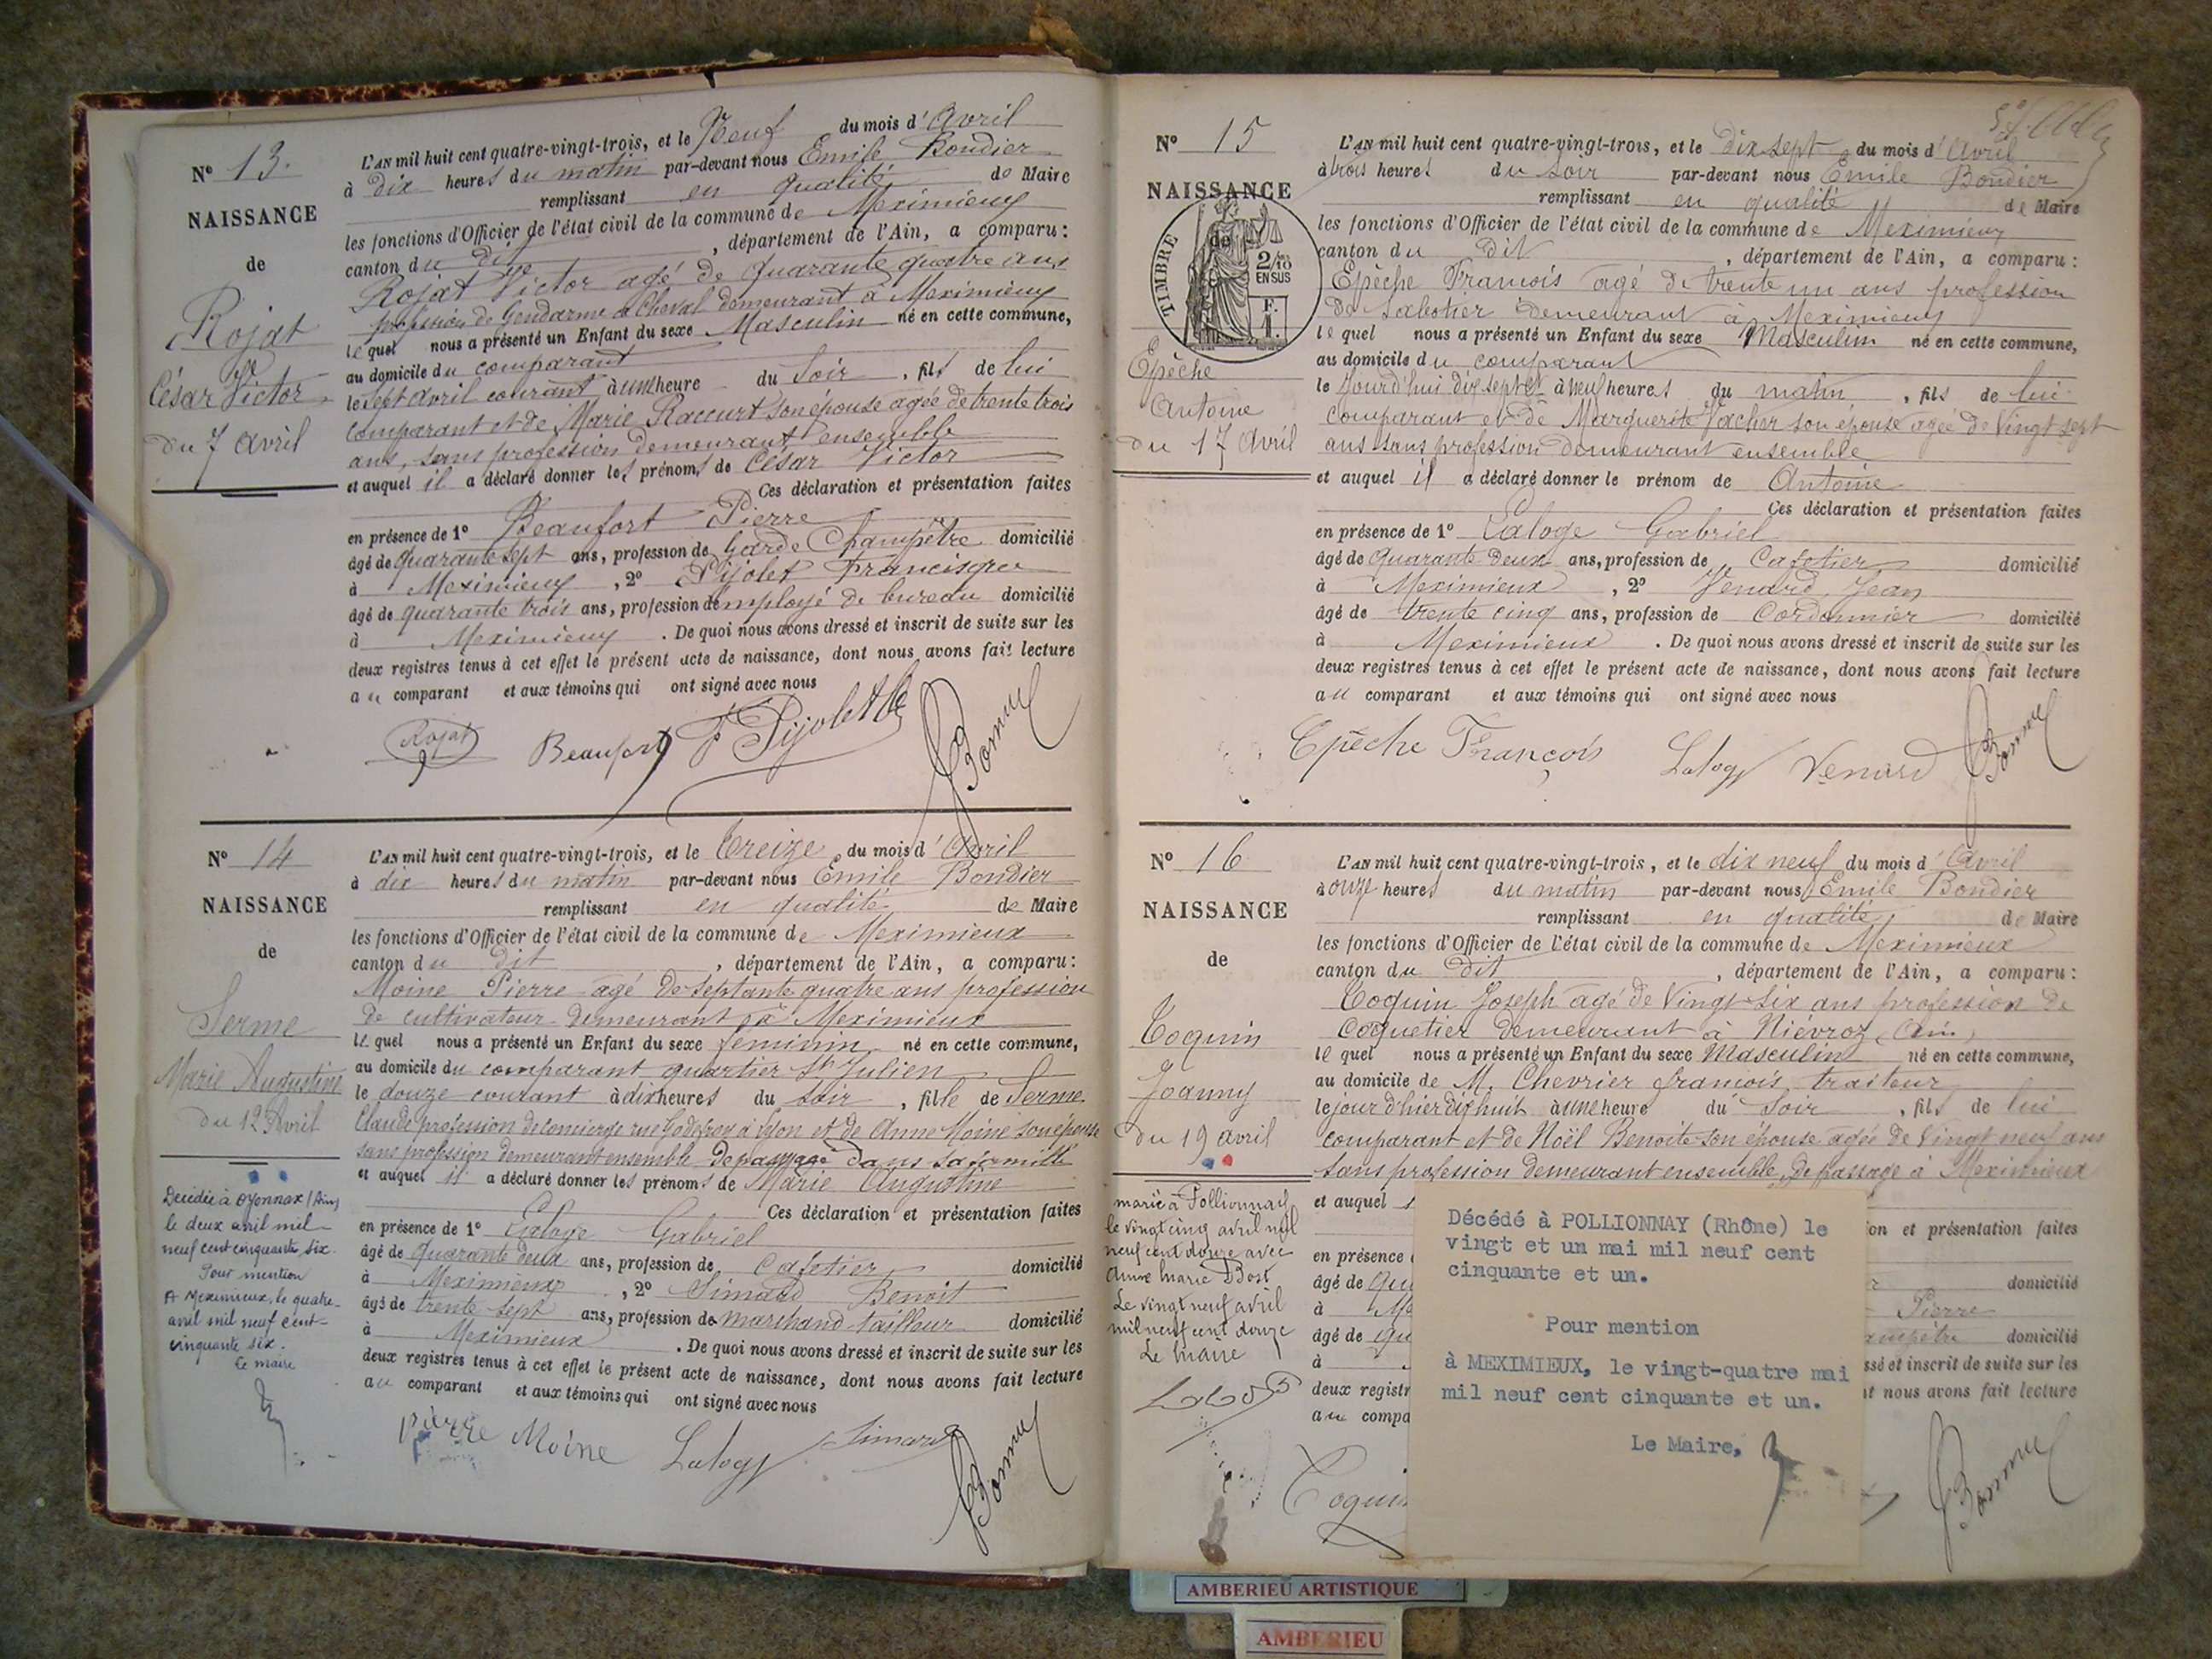 N° 13.
NAISSANCE
de
Rojat
César Victor
du 7 avril
L'AN mil huit cent quatre-vingt-trois, et le Neuf du mois d'Avril
à Dix heures du matin par-devant nous Emile Bondier
remplissant en qualité de Maire
les fonctions d'Officier de l'état civil de la commune de Meximieux
canton du dit, département de l'Ain, a comparu :
Rojat Victor agé de quarante quatre ans
profession de Gendarme à Cheval demeurant à Meximieux
lequel nous a présenté un Enfant du sexe Masculin né en cette commune,
au domicile du comparant
le sept avril courant à une heure du Soir, fils de lui
comparant et de Marie Raccurt son épouse agée de trente trois
ans, sans profession demeurant ensemble
et auquel il a déclaré donner les prénoms de César Victor
Ces déclaration et présentation faites
en présence de 1° Beaufort Pierre
âgé de quarante sept ans, profession de Garde Champêtre domicilié
à Meximieux, 2° Pijolet Francisque
âgé de quarante trois ans, profession d'employé de bureau domicilié
à Meximieux. De quoi nous avons dressé et inscrit de suite sur les
deux registres tenus à cet effet le présent acte de naissance, dont nous avons fait lecture
au comparant et aux témoins qui ont signé avec nous
Rojat Beaufort F Pijolet
N° 14
NAISSANCE
de
Serme
Marie Augustine
du 12 Avril
Decédée à Oyonnax (Ain)
le deux avril mil
neuf cent cinquante six.
Pour mention
A Meximieux, le quatre
avril mil neuf cent
cinquante six.
Le maire
L'AN mil huit cent quatre-vingt-trois, et le Treize du mois d'Avril
à dix heures du matin par-devant nous Emile Bondier
remplissant en qualité de Maire
les fonctions d'Officier de l'état civil de la commune de Meximieux
canton du dit, département de l'Ain, a comparu :
Moine Pierre agé de septante quatre ans profession
de cultivateur demeurant à Meximieux
lequel nous a présenté un Enfant du sexe féminin né en cette commune,
au domicile du comparant quartier St Julien
le douze courant à dix heures du soir, fille de Serme
Claude profession de concierge rue Godefroy à Lyon et de Anne Moine son épouse
sans profession demeurant ensemble de passage dans sa famille
et auquel il a déclaré donner les prénoms de Marie Augustine
Ces déclaration et présentation faites
en présence de 1° Laloge Gabriel
âgé de quarante deux ans, profession de Cafetier domicilié
à Meximieux, 2° Simard Benoit
âgé de trente sept ans, profession de marchand tailleur domicilié
à Meximieux. De quoi nous avons dressé et inscrit de suite sur les
deux registres tenus à cet effet le présent acte de naissance, dont nous avons fait lecture
au comparant et aux témoins qui ont signé avec nous
Pierre Moine Laloge Simard
N° 15
NAISSANCE
de
TIMBRE
2/10
EN SUS
F.
Epèche
Antoine
du 17 Avril
L'AN mil huit cent quatre-vingt-trois, et le dix sept du mois d'Avril
à trois heures du soir par-devant nous Emile Bondier
remplissant en qualité de Maire
les fonctions d'Officier de l'état civil de la commune de Meximieux
canton du dit, département de l'Ain, a comparu :
Epèche François agé de trente un ans profession
de Sabotier demeurant à Meximieux
lequel nous a présenté un Enfant du sexe Masculin né en cette commune,
au domicile du comparant
le jourd'hui dix sept à neuf heures du matin, fils de lui
comparant et de Marguerite Vacher son épouse agée de Vingt sept
ans sans profession demeurant ensemble
et auquel il a déclaré donner le prénom de Antoine
Ces déclaration et présentation faites
en présence de 1° Laloge Gabriel
âgé de quarante deux ans, profession de Cafetier domicilié
à Meximieux, 2° Venard Jean
âgé de trente cinq ans, profession de Cordonnier domicilié
à Meximieux. De quoi nous avons dressé et inscrit de suite sur les
deux registres tenus à cet effet le présent acte de naissance, dont nous avons fait lecture
au comparant et aux témoins qui ont signé avec nous
Epèche François Laloge Venard
N° 16
NAISSANCE
de
Coquin
Joanny
du 19 avril
marié à Pollionnay
le vingt cinq avril mil
neuf cent douze avec
Anne Marie Bost
Le vingt neuf avril
mil neuf cent douze
Le Maire
L'AN mil huit cent quatre-vingt-trois, et le dix neuf du mois d'Avril
à onze heures du matin par-devant nous Emile Bondier
remplissant en qualité de Maire
les fonctions d'Officier de l'état civil de la commune de Meximieux
canton du dit, département de l'Ain, a comparu :
Coquin Joseph agé de Vingt-six ans profession de
Coquetier demeurant à Niévroz (Ain)
lequel nous a présenté un Enfant du sexe Masculin né en cette commune,
au domicile de M. Chevrier françois, traiteur
le jour d'hier dix huit à une heure du Soir, fils de lui
comparant et de Noël Benoite son épouse agée de Vingt neuf ans
sans profession demeurant ensemble, de passage à Meximieux
et auquel
on et présentation faites
en présence
âgé de qua domicilié
à Me Pierre
âgé de qua ampêtre domicilié
à ssé et inscrit de suite sur les
deux registr t nous avons fait lecture
au compa
Coquin
Décédé à POLLIONNAY (Rhône) le
vingt et un mai mil neuf cent
cinquante et un.
Pour mention
à MEXIMIEUX, le vingt-quatre mai
mil neuf cent cinquante et un.
Le Maire,
AMBERIEU ARTISTIQUE
AMBERIEU